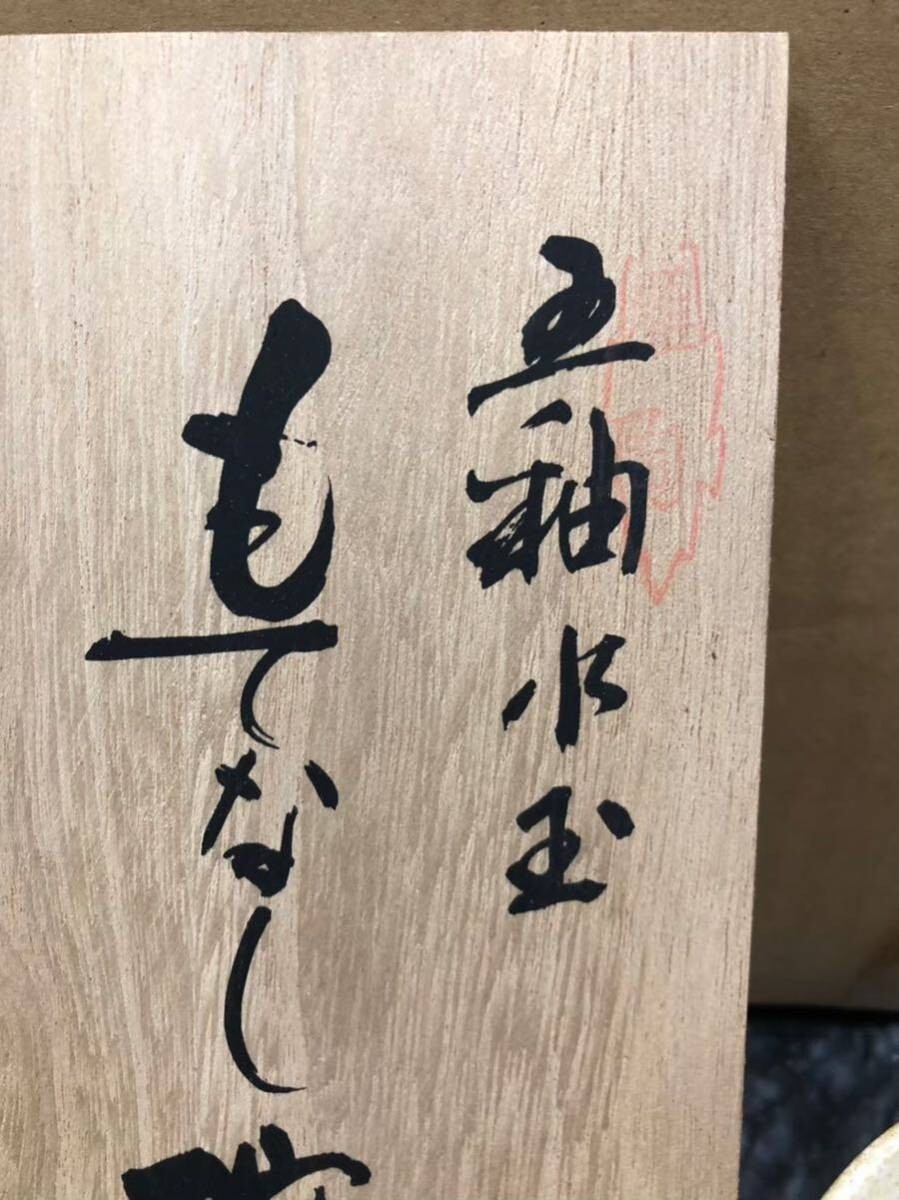 五釉水玉
もてなし